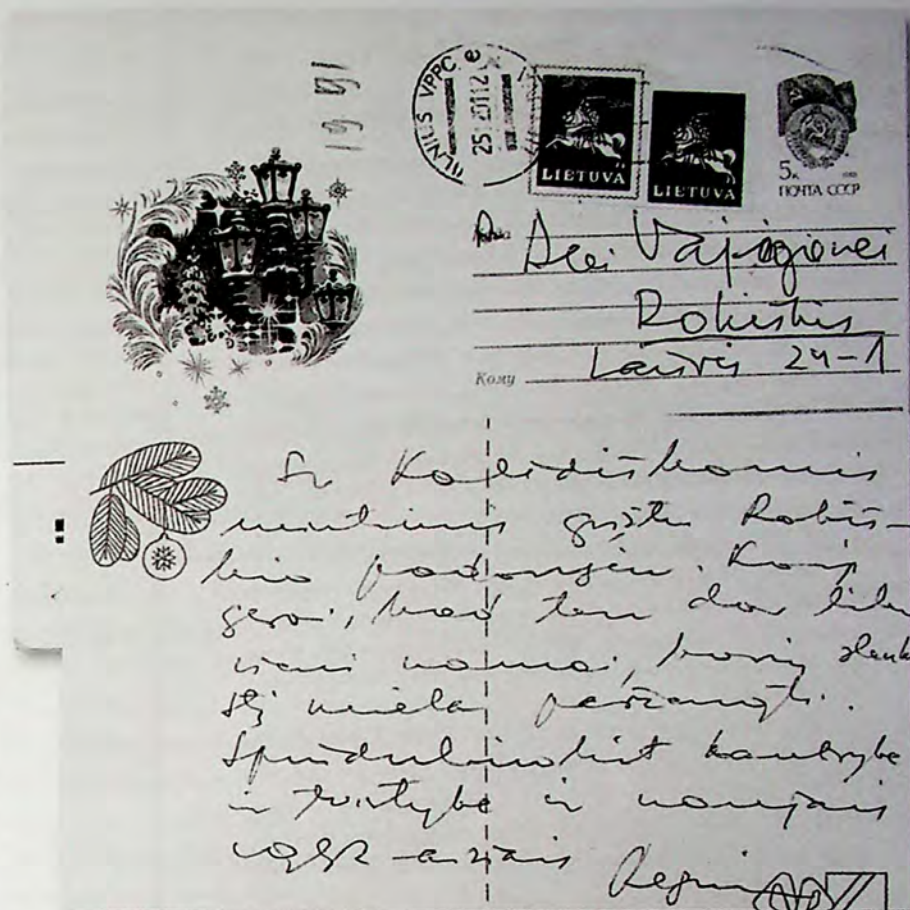 1991
VILNIUS VPPC e
25 12
LIETUVA
LIETUVA
5к
ПОЧТА СССР
Куда
Alei Vapagienei
Rokiškis
Laisvės 24-1
Кому
Su Kalėdiškomis
mintimis grįžtu Rokiš-
kio padangėn. Kaip
gerai, kad ten dar liko
vieni namai, kurių slenk
stį miela peržengti.
Spinduliuokit kantrybe
ir tvirtybe ir naujais
Regina